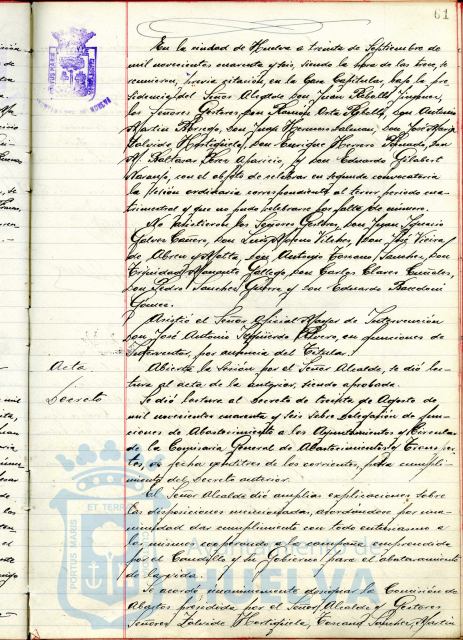 61
En la ciudad de Huelva a treinta de Septiembre de
mil novecientos cuarenta y seis, siendo la hora de las once, se
reunieron, previa citación, en la Casa Capitular, bajo la pre-
sidencia del Señor Alcalde Don Juan Rebollo Jimenez,
los Señores Gestores, Don Ramón Don Antonio
Martin Don Don José Maria
Zalvide Hortigüela, Don Enrique Herrero Don
Baltasar Perez Aparicio, y Don Eduardo Gilabert
Naranjo, con el objeto de celebrar en segunda convocatoria
la sesión ordinaria correspondiente al tercer periodo cua-
trimestral y que no pudo celebrarse por falta de número.
No asistieron los Señores Gestores, Don Juan Ignacio
Galvez Cañero, Don Luis Don José
de Abreu y Don Antonio Toscano Sanchez, Don
Trinidad Gallego, Don Carlos
Don Pedro Sanchez y Don Eduardo
Gomez.
Asistió el Señor Oficial Mayor de Intervención
Don José Antonio Izquierdo en funciones de
Interventor, por ausencia del Titular.
Acta
Abierta la sesión por el Señor Alcalde, se dió lec-
tura al acta de la anterior, siendo aprobada.
Decreto
Se dió lectura al Decreto de treinta de Agosto de
mil novecientos cuarenta y seis sobre delegación de fun-
ciones de Abastecimiento a los Ayuntamientos y Circular
de la Comisaria General de Abastecimientos y Transpor-
tes, de fecha de los corrientes, para cumpli-
miento del Decreto anterior.
El Señor Alcalde dió amplias explicaciones sobre
las disposiciones mencionadas, acordándose por una-
nimidad dar cumplimiento con todo entusiasmo a
las mismas cooperando a la campaña emprendida
por el Caudillo y su Gobierno para el abaratamiento
de la vida.
Se acordó unanimemente designar la Comisión de
Abastos presidida por el Señor Alcalde y Gestores
Señores Zalvide Hortigüela, Toscano Sanchez, Martin
PORTUS MARIS ET TERRAE
Ayuntamiento de
HUELVA